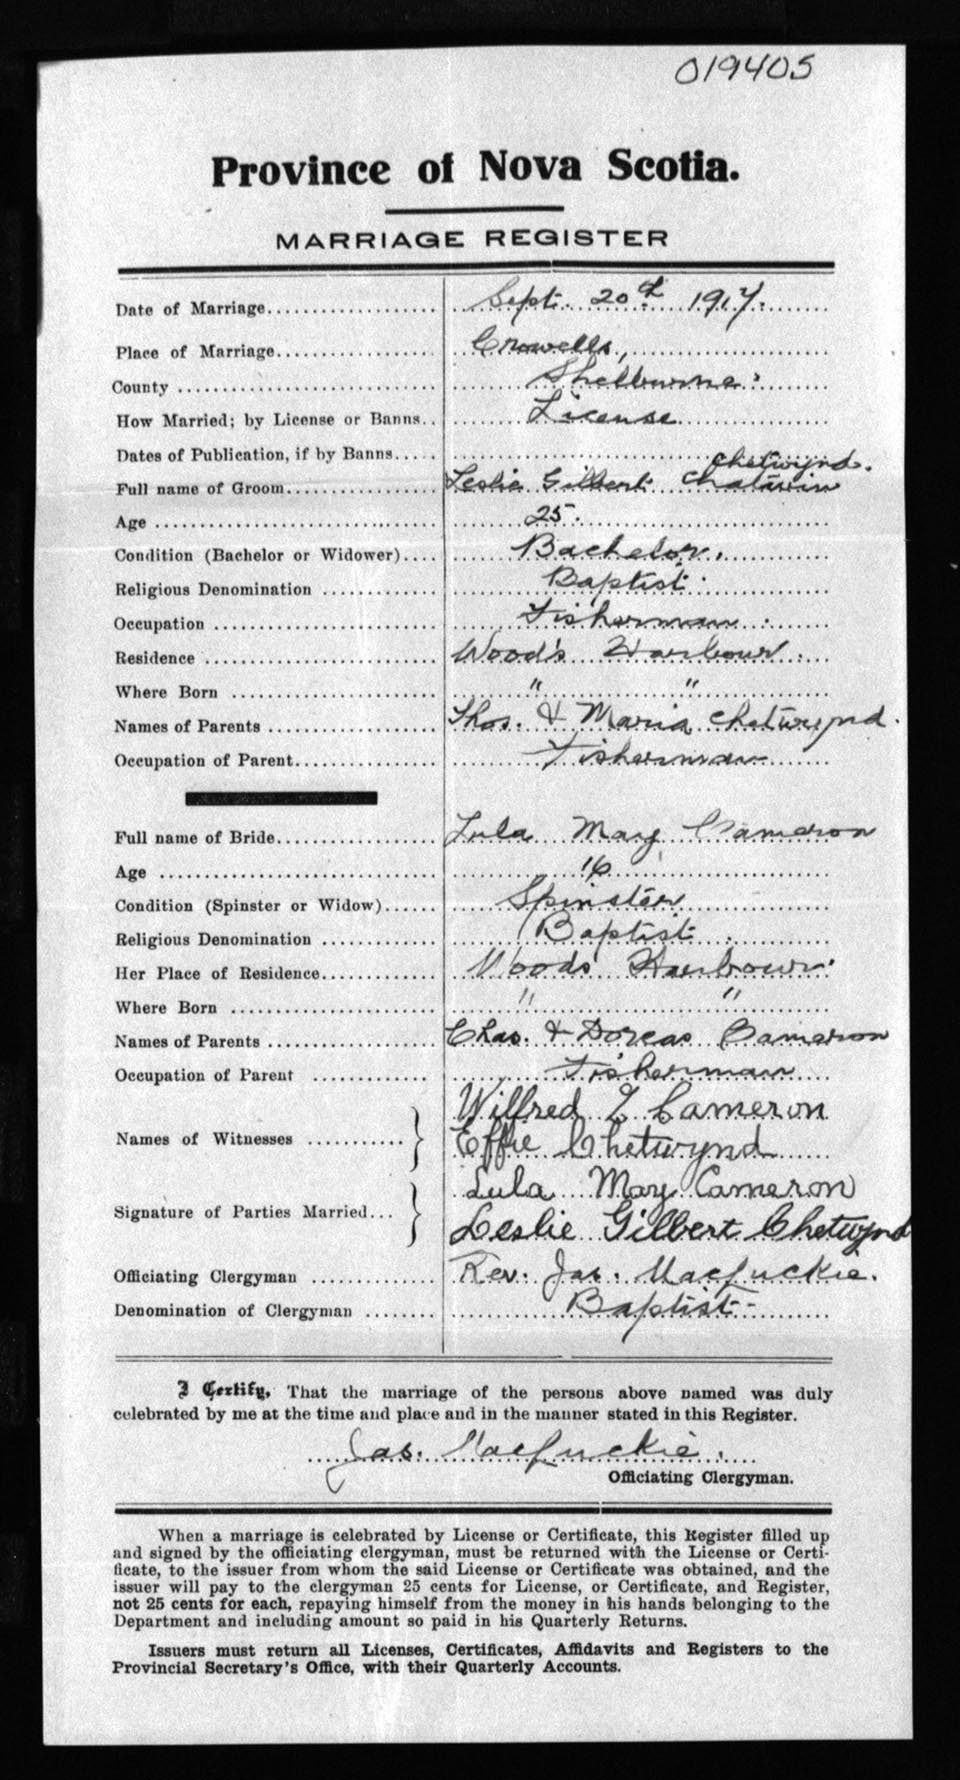 019405
Province of Nova Scotia.
MARRIAGE REGISTER
Date of Marriage.................... Sept. 20th 1917.
Place of Marriage.................. Crowells,
County .............................. Shelburne.
How Married; by License or Banns.. License
Dates of Publication, if by Banns.....
Chetwynd.
Full name of Groom.................. Leslie Gilbert Chatawin
Age ................................. 25.
Condition (Bachelor or Widower).... Bachelor.
Religious Denomination ............. Baptist.
Occupation .......................... Fisherman.
Residence ........................... Wood's Harbour.
Where Born ........................ " "
Names of Parents ................... Thos. & Maria Chetwynd.
Occupation of Parent................ Fisherman
Full name of Bride................... Lula May Cameron
Age ................................. 16
Condition (Spinster or Widow)...... Spinster
Religious Denomination ............. Baptist.
Her Place of Residence............. Woods Harbour.
Where Born ........................ " "
Names of Parents ................... Chas. & Dorcas Cameron
Occupation of Parent .............. Fisherman
Wilfred E Cameron
Names of Witnesses ........... } Effie Chetwynd
Lula May Cameron
Signature of Parties Married... } Leslie Gilbert Chetwynd
Officiating Clergyman .............. Rev. Jas. MacLuckie.
Denomination of Clergyman ........ Baptist-
I Certify, That the marriage of the persons above named was duly
celebrated by me at the time and place and in the manner stated in this Register.
Jas. MacLuckie.
Officiating Clergyman.
When a marriage is celebrated by License or Certificate, this Register filled up
and signed by the officiating clergyman, must be returned with the License or Certi-
ficate, to the issuer from whom the said License or Certificate was obtained, and the
issuer will pay to the clergyman 25 cents for License, or Certificate, and Register,
not 25 cents for each, repaying himself from the money in his hands belonging to the
Department and including amount so paid in his Quarterly Returns.
Issuers must return all Licenses, Certificates, Affidavits and Registers to the
Provincial Secretary's Office, with their Quarterly Accounts.